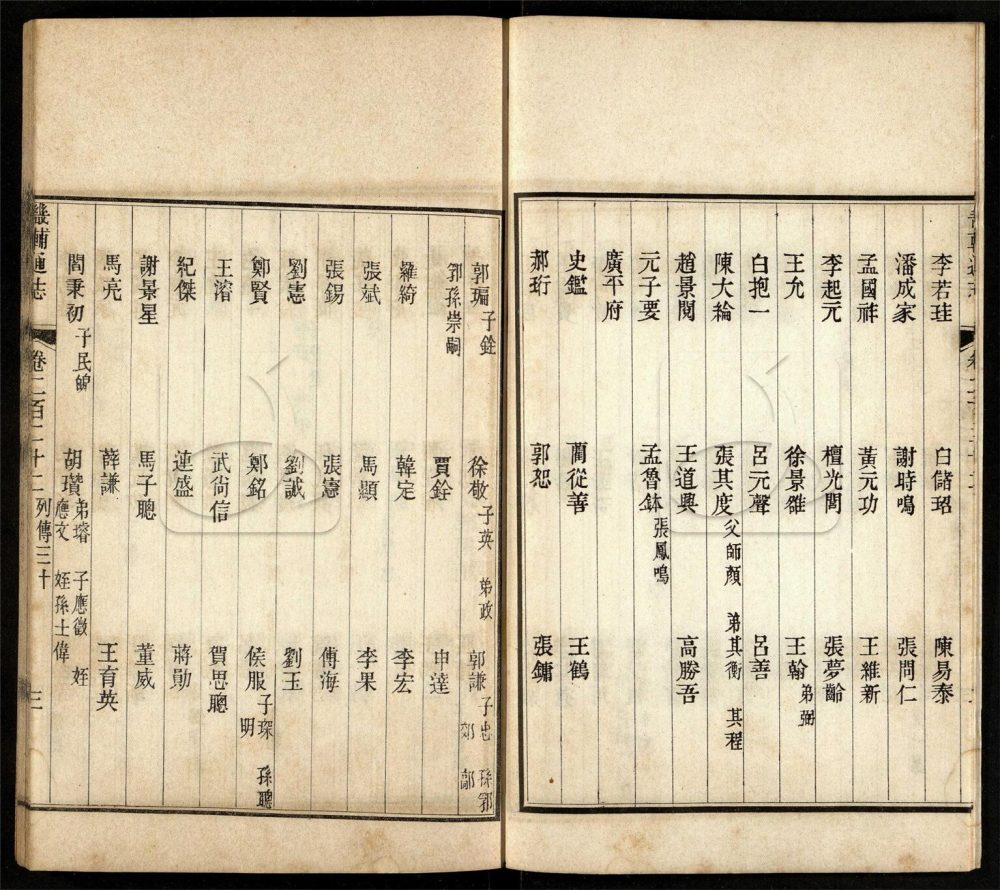 李若珪 白儲玿 陳易泰
潘成家 謝時鳴 張問仁
孟國祚 黃元功 王維新
李起元 檀光闇 張夢齡
王允 徐景雒 王翰 弟弼
白抱一 呂元聲 呂善
陳大綸 張其度 父師顏 弟其衡 其程
趙景閱 王道興 高勝吾
元子要 孟魯鉢 張鳳鳴
廣平府
史鑑 藺從善 王鶴
郝珩 郭恕 張鏞
郭㻞 子銓 徐敬 子英 弟政 郭謙 子忠 郊 孫郛 鄗
郭孫崇嗣 賈銓 申達
羅綺 韓定 李宏
張斌 馬顯 李果
張錫 張憲 傅海
劉憲 劉誠 劉玉
鄭賢 鄭銘 侯服 子琛 明 孫聰
王濬 武尚信 賀思聰
紀傑 連盛 蔣勛
謝景星 馬子聰 董威
馬亮 薛謙 王育英
閻秉初 子民 胡瓚 弟璿 應文 子應徵 姪 姪孫士偉
畿輔通志 卷二百二十二 列傳三十 三